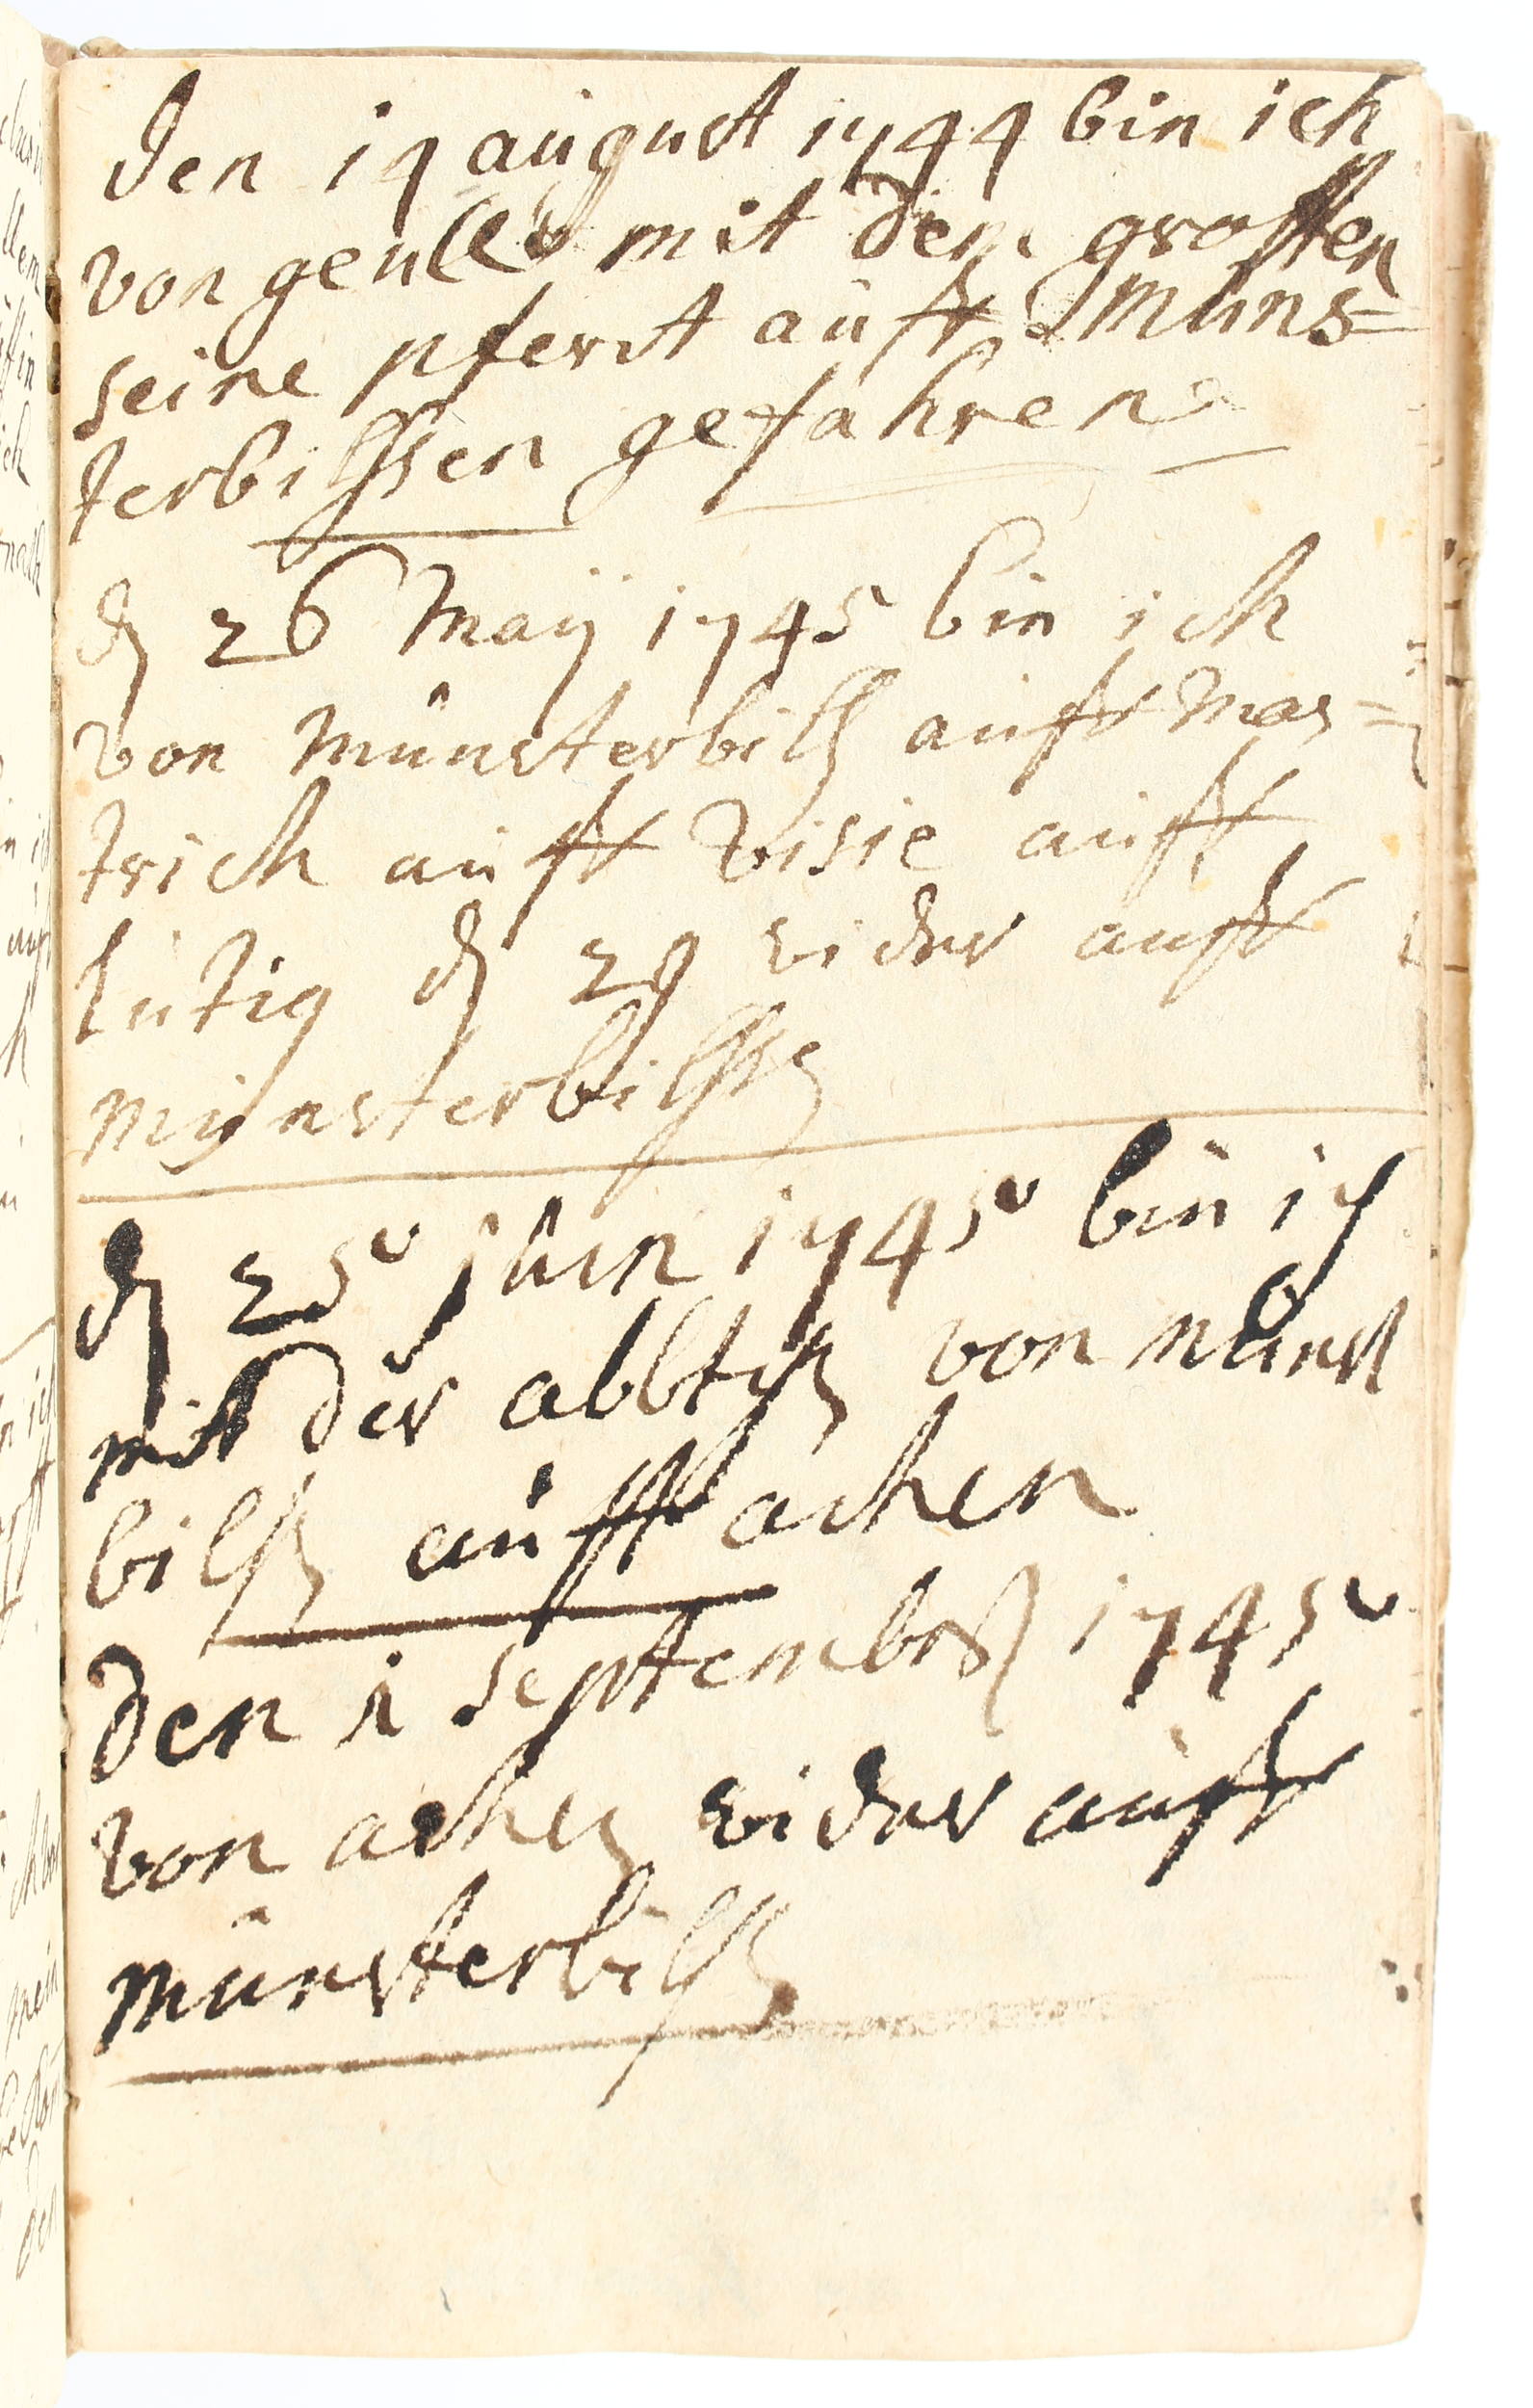 den 19 august 1744 bin ich
von geulle mit dem grossen
seine pferdt auft Müns=
terbilssen gefahren
dñ 26 Maÿ 1745 bin ich
von münsterbilsen auft mas=
trich auft visie auft
lutig dñ 29 wider auft
münsterbilssen
dñ 25 juin 1745 bin ich
mit der abbtisn von münst
bilsn aufft achen
den 1 septembris 1745
von achen wider auft
münsterbilsn